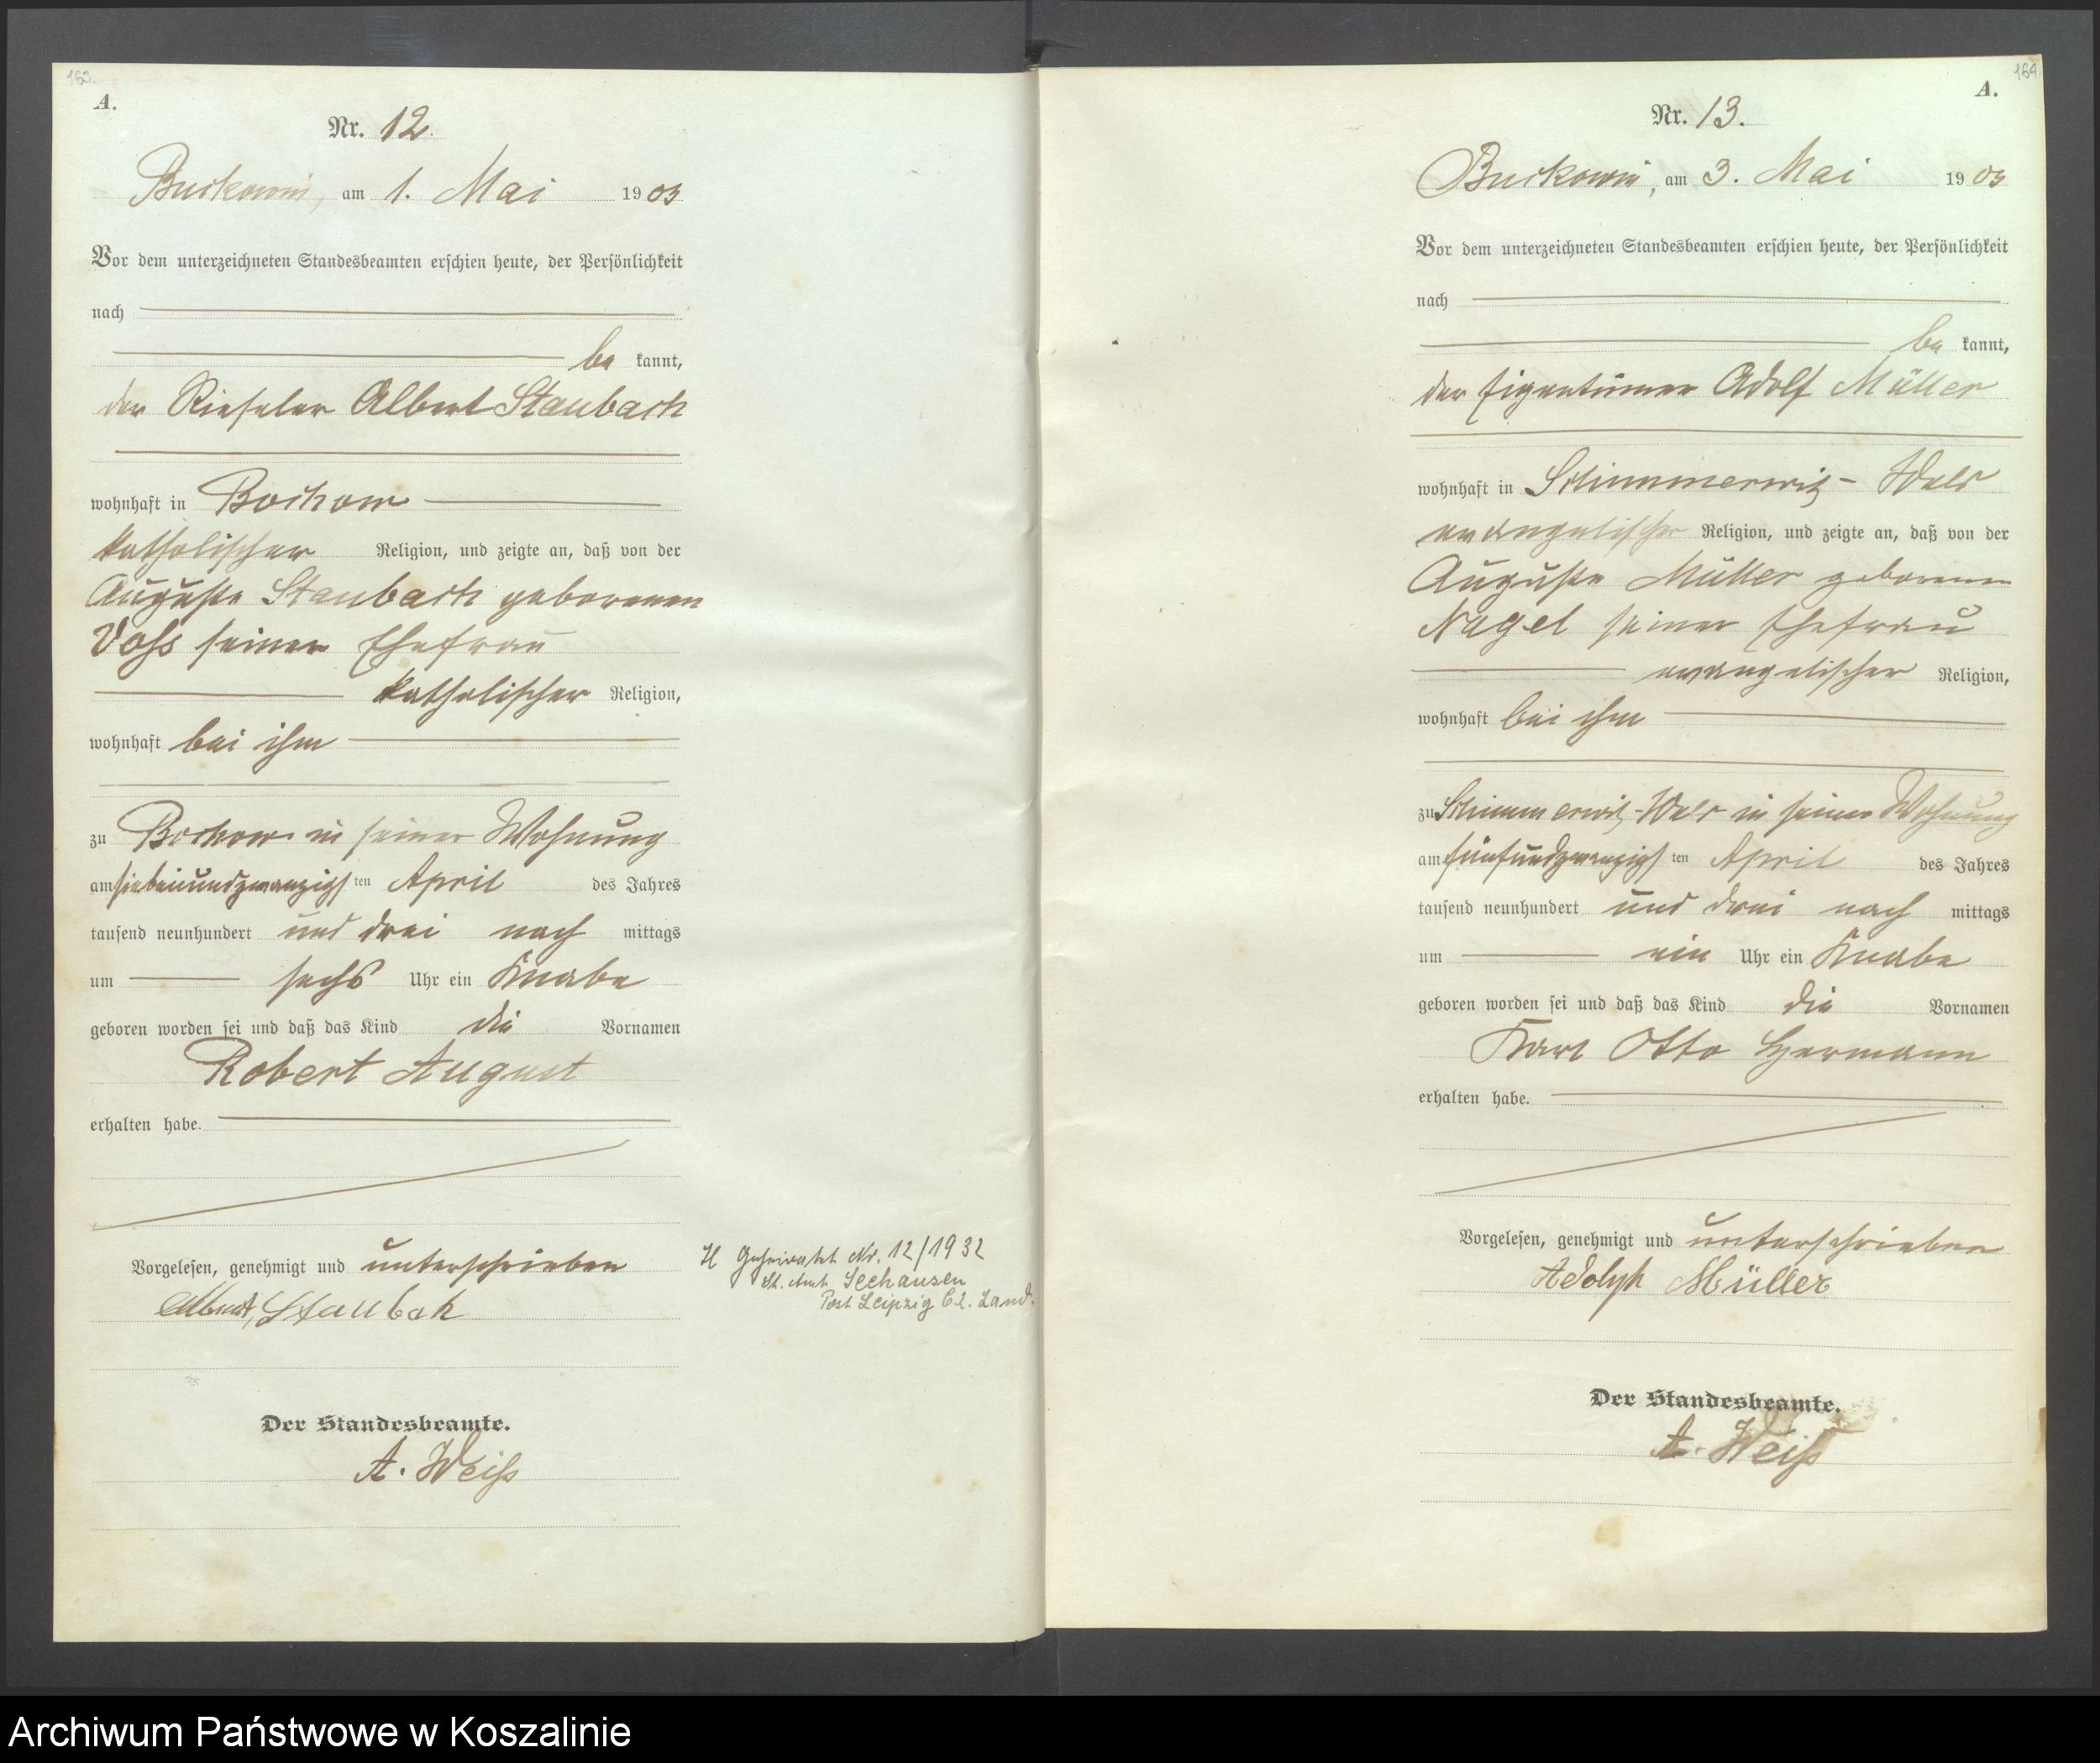 163.
A.
Nr. 12.
Buckowin, am 1. Mai 1903
Vor dem unterzeichneten Standesbeamten erschien heute, der Persönlichkeit
nach
be kannt,
der Rieseler Albert Staubach
wohnhaft in Bochow
katholischer Religion, und zeigte an, daß von der
Auguste Staubach geborenen
Voss seiner Ehefrau
katholischer Religion,
wohnhaft bei ihm
zu Bochow in seiner Wohnung
am siebenundzwanzigsten April des Jahres
tausend neunhundert und drei nach mittags
um sechs Uhr ein Knabe
geboren worden sei und daß das Kind die Vornamen
Robert August
erhalten habe.
Vorgelesen, genehmigt und unterschrieben
Albert, Staubach
Der Standesbeamte.
A. Weiß
Geheiratet Nr. 12/1932
St. Amt Seehausen
Post Leipzig C.2. Land.
164
A.
Nr. 13.
Buckowin, am 3. Mai 1903
Vor dem unterzeichneten Standesbeamten erschien heute, der Persönlichkeit
nach
be kannt,
der Eigentümer Adolf Müller
wohnhaft in Schimmerwitz-Wald
evangelischer Religion, und zeigte an, daß von der
Auguste Müller geborenen
Nagel seiner Ehefrau
evangelischer Religion,
wohnhaft bei ihm
zu Schimmerwitz-Wald in seiner Wohnung
am fünfundzwanzigsten April des Jahres
tausend neunhundert und drei nach mittags
um ein Uhr ein Knabe
geboren worden sei und daß das Kind die Vornamen
Karl Otto Hermann
erhalten habe.
Vorgelesen, genehmigt und unterschrieben
Adolph Müller
Der Standesbeamte.
A. Weiß
Archiwum Państwowe w Koszalinie